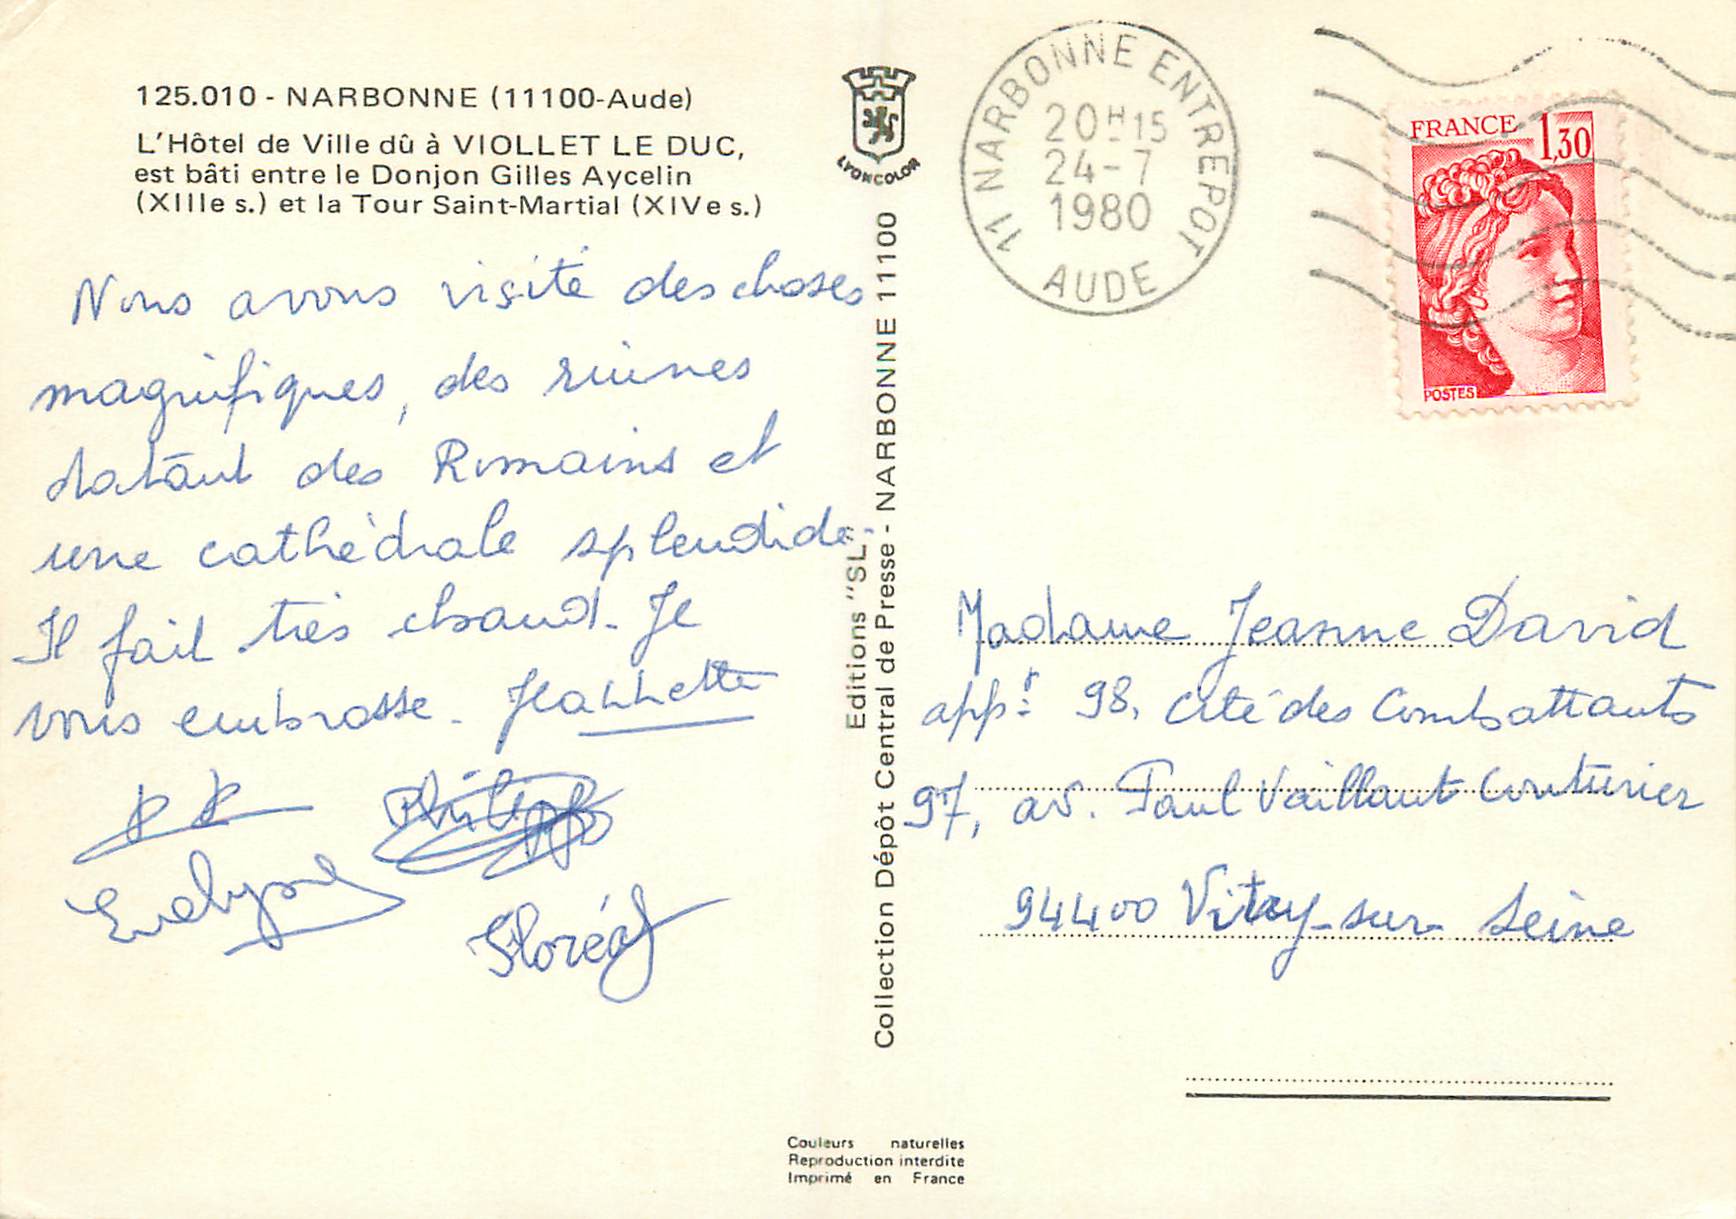 125.010 - NARBONNE (11100-Aude)
L'Hôtel de Ville dû à VIOLLET LE DUC,
est bâti entre le Donjon Gilles Aycelin
(XIIIe s.) et la Tour Saint-Martial (XIVe s.)
Nous avons visité des choses
magnifiques, des ruines
datant des Romains et
une cathédrale splendide.
Il fait très chaud. Je
vous embrasse. Jeannette
Philippe
Evelyne
Floréal
LYONCOLOR
Editions "SL"
Collection Dépôt Central de Presse - NARBONNE 11100
11 NARBONNE ENTREPOT
20H15
24-7
1980
AUDE
FRANCE 1,30
POSTES
Madame Jeanne David
appt 98, cité des Combattants
97, av. Paul Vaillant Couturier
94400 Vitry-sur-Seine
Couleurs naturelles
Reproduction interdite
Imprimé en France